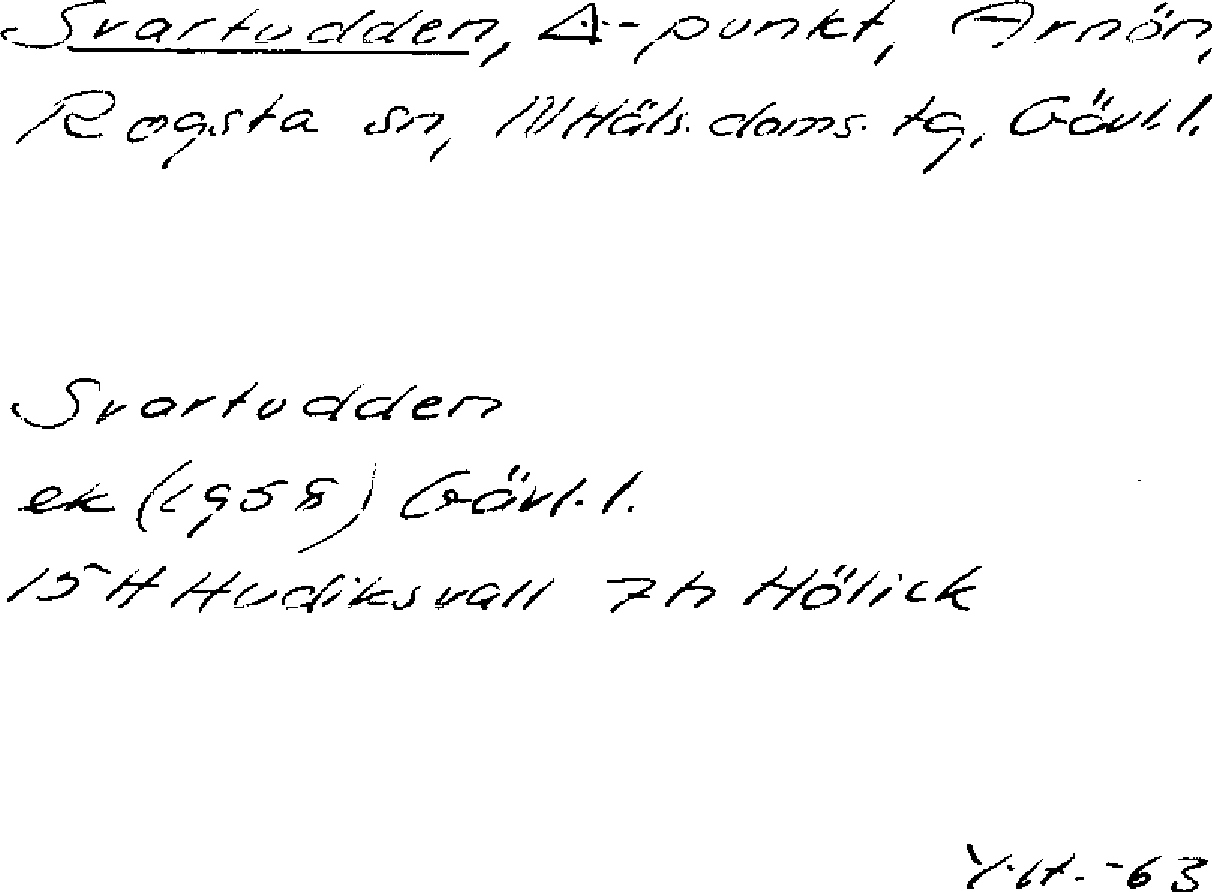 Svartudden, Δ-punkt, Arnön,
Rogsta sn, N Häls. doms. tg, Gävl.l.
Svartudden
ek (1958) Gävl.l.
15H Hudiksvall 7h Hölick
-63